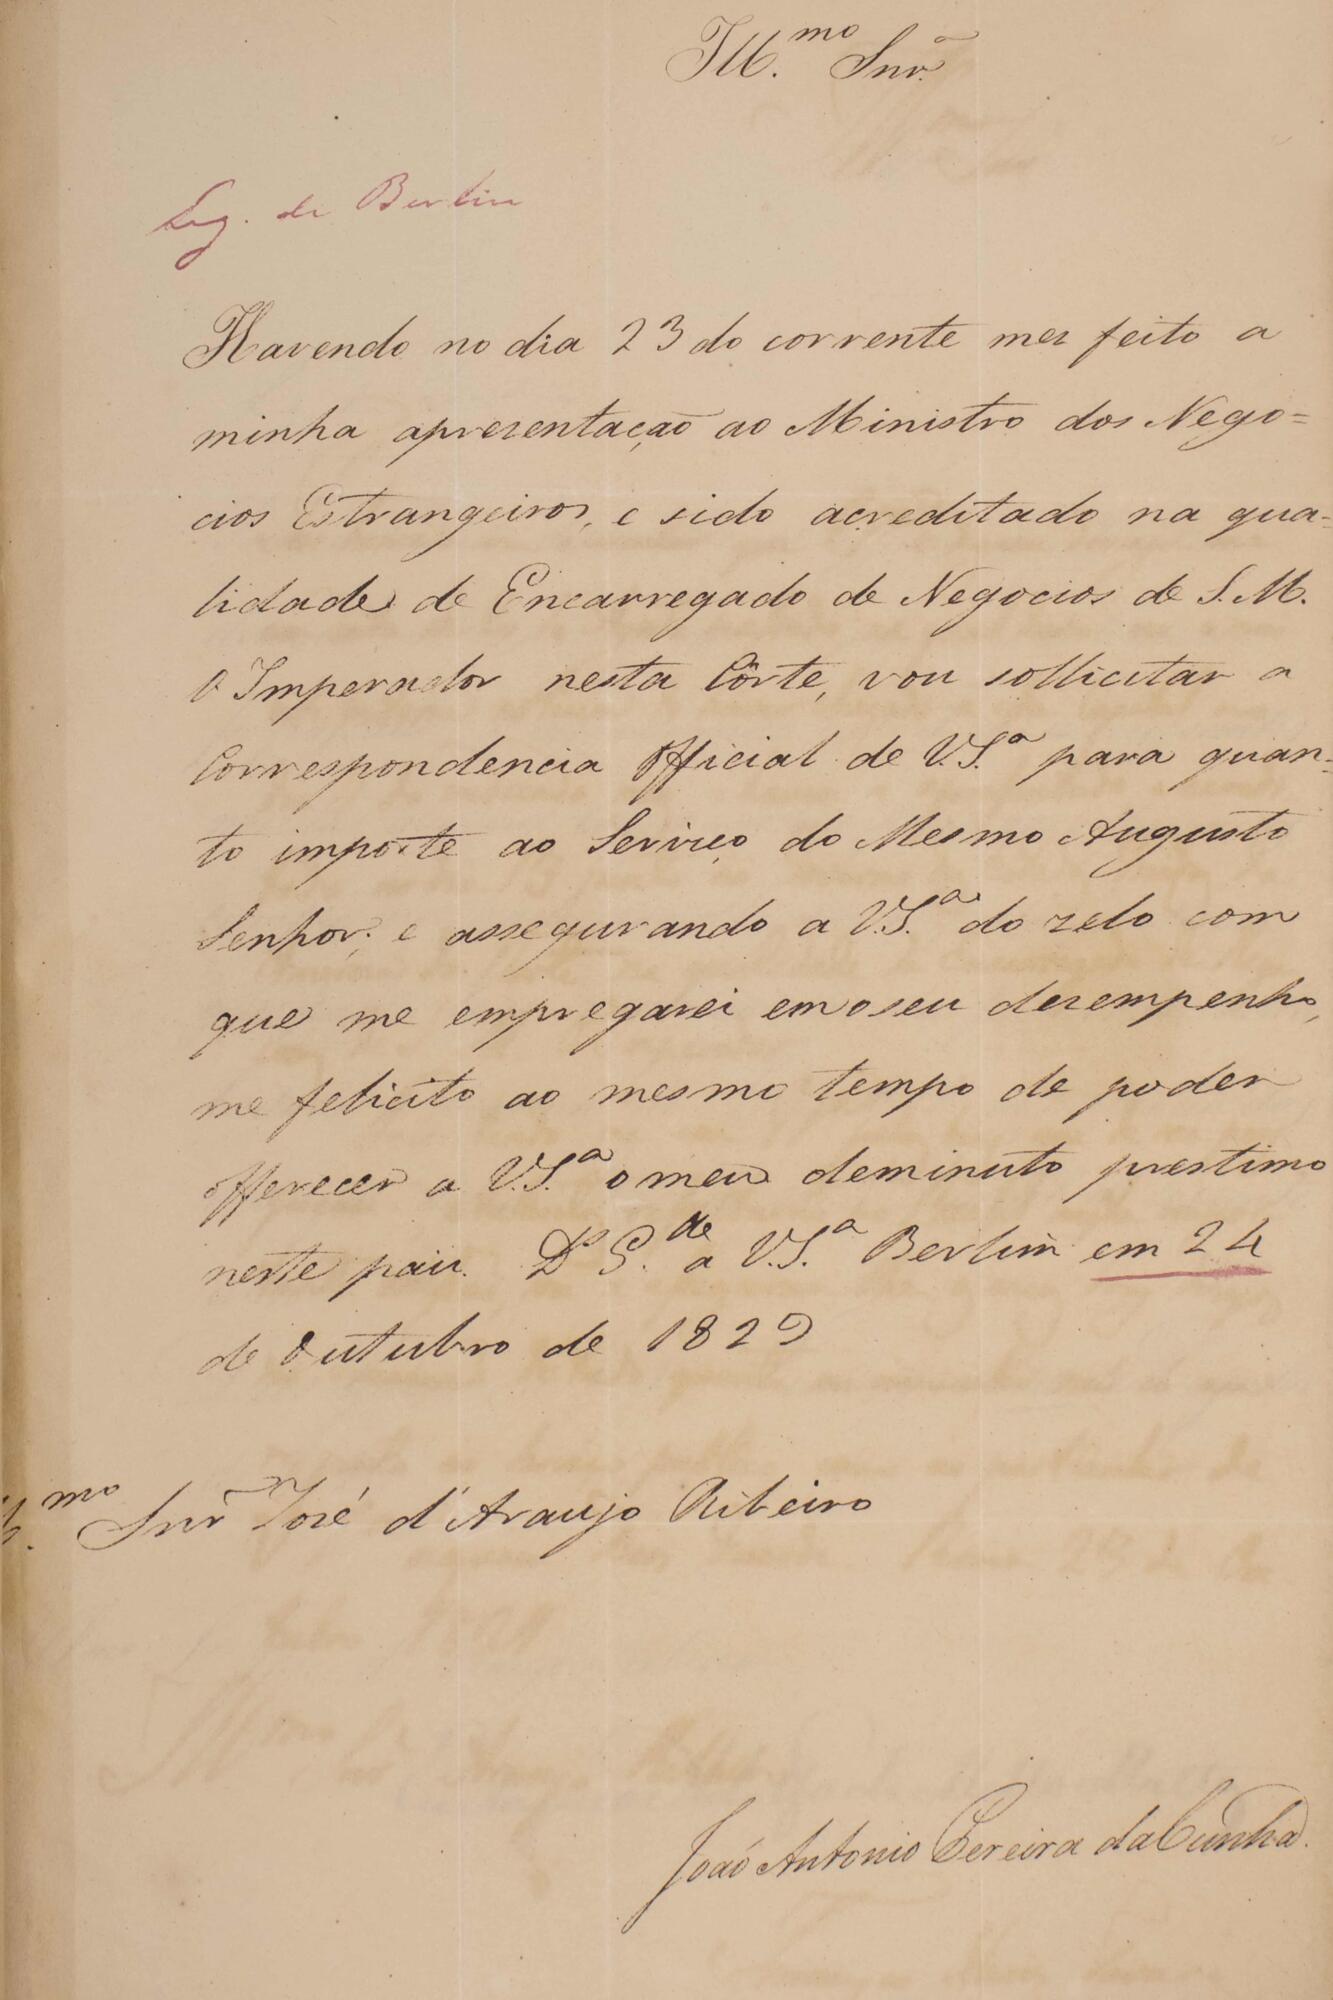 Ill.mo Snr.
Leg. de Berlin
Havendo no dia 23 do corrente mez feito a
minha aprezentação ao Ministro dos Nego=
cios Estrangeiros, e sido acreditado na qua=
lidade de Encarregado de Negocios de S.M.
O Imperador nesta Côrte, vou sollicitar a
Correspondencia Official de V.S.ª para quan=
to importe ao Serviço do Mesmo Augusto
Senhor; e assegurando a V.S.ª do zelo com
que me empregarei em o seu dezempenho,
me felicito ao mesmo tempo de poder
offerecer a V.S.ª o meu deminuto prestimo
neste paiz. D.s G.de a V.S.ª Berlim em 24
de Outubro de 1829
Ill.mo Snr José d'Araujo Ribeiro
João Antonio Pereira da Cunha.